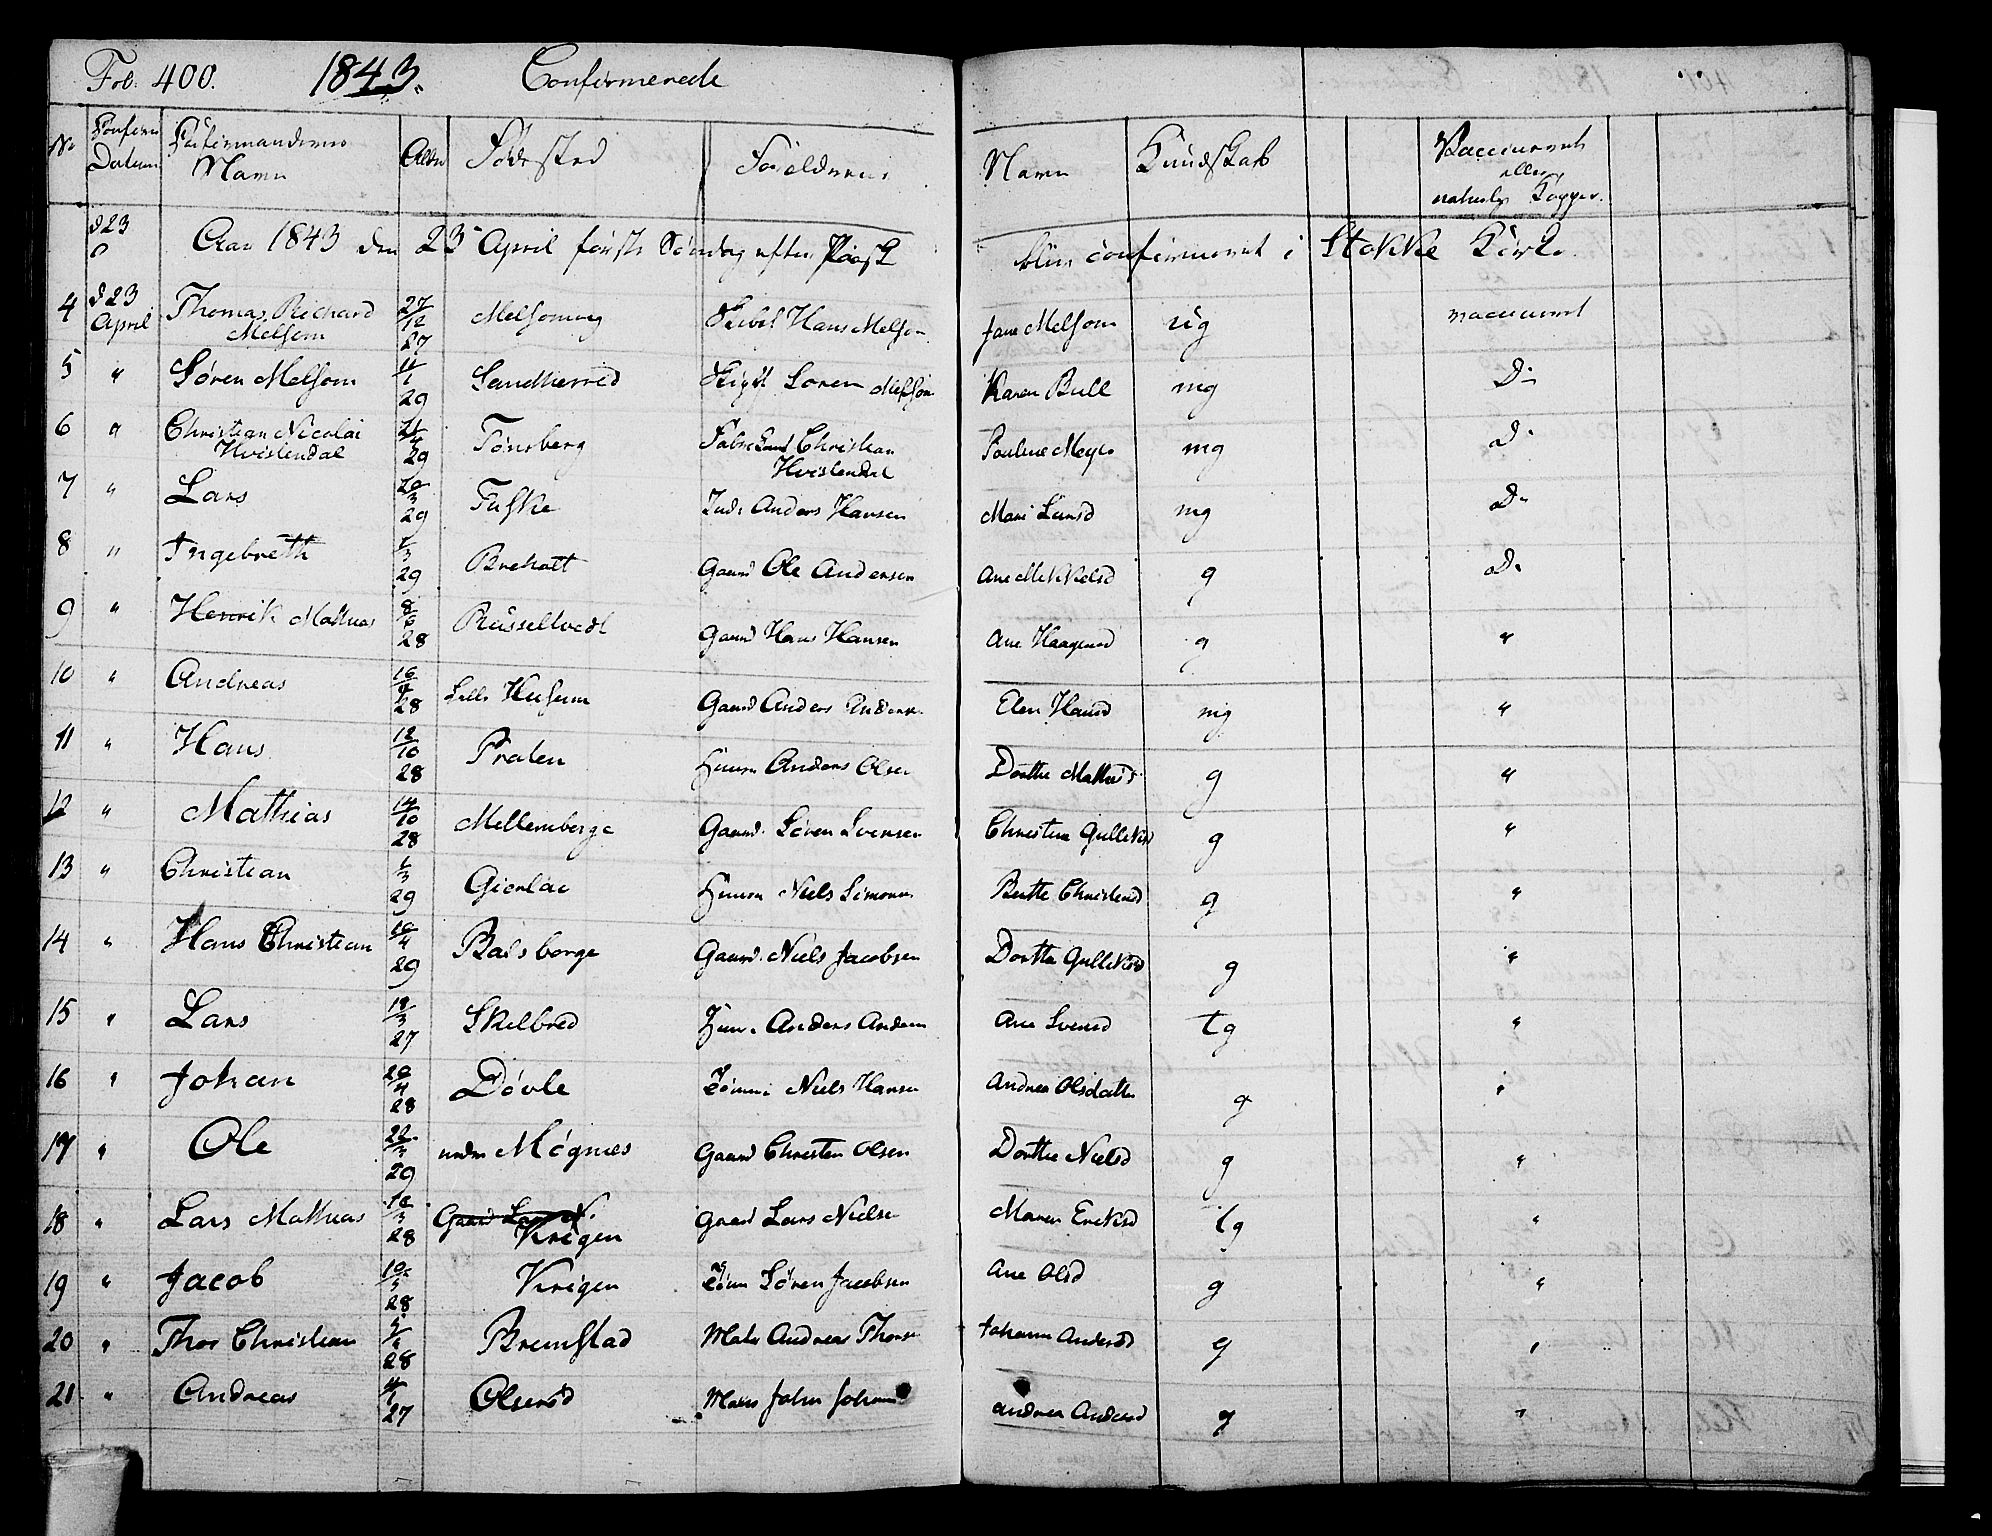 Fol. 400. 1843. Confirmerede
No Confirm Datum Confirmandernes Navn Alder Fødested Forældrenes Navn Kundskab Vaccineret eller naturlige Kopper.
d 23 Aar 1843 den 23 April første Søndag efter Paaske blev confirmeret i Stokke Kirke.
4 d 23 April Thomas Richard Melsom 27/12 27 Melsomvig Skibsk Hans Melsom Jane Melsom ug vaccineret
5 " Søren Melsom 11/1 29 Sandherred Søren Melsom Karen Bull mg Do
6 " Christian Nicolai Hvistendal 29 Tønsberg Christian Hvistendal Pauline Meyer mg Do
7 " Lars 20/3 29 Fuske Inds Anders Hansen Mari Larsd mg Do
8 " Ingebreth /3 29 Brekott Gaard Ole Andersen Ane Mikkelsd g Do
9 " Henrik Mathias 8/6 28 Russeltvedt Gaard Hans Hansen Ane Haagensd g "
10 " Andreas 16/ 28 Lille Husum Gaard Anders Anderse Elen Hansd mg "
11 " Hans 12/10 28 Pralen Huusm Anders Olsen Dorthe Mathisd g "
12 " Mathias 14/10 28 Mellemberge Gaard. Søren Svensen Christine Gulliksd g "
13 " Christian /3 29 Gierløe Huusm Niels Simonsen Berthe Christensd g "
14 " Hans Christian 10/4 29 Balsberge Gaard. Niels Jacobsen Dorthe Gulliksd g "
15 " Lars 18/3 27 Skelbred Huus Anders Andersen Ane Svensd tg "
16 " Johan 20/4 28 Døvle Niels Hansen Andrea Olsdatter g "
17 " Ole 22/3 29 nedre Møgnes Gaard Christen Olsen Dorthe Nielsd g "
18 " Lars Mathias 18/3 28 Krigen Gaard Lars Nielse Maren Eriksd tg "
19 " Jacob 10/5 28 Krigen Søren Jacobsen Ane Olsd g "
20 " Thor Christian 28 Bremstad Mats Andreas Thorse Johanne Andersd g "
21 " Andreas 11/1 27 Olserød John Johans Andrea Andersd g "